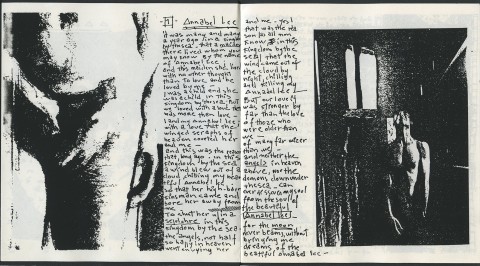 Annabel Lee
It was many and many
a year ago in a kingdom
by the sea, that a maiden
there lived whom you
may know By the name
of Annabel Lee
and this maiden she lived
with no other thought
than to love and be
loved by me
I was a child and she
was a child in this
kingdom by the sea. But
we loved with a love that
was more than love –
I and my Annabel Lee –
with a love that the
winged seraphs of
heaven coveted her
and me –
and this was the reason
that, long ago, in this
kingdom by the sea
a wind blew out of a
cloud chilling my beau
tiful Annabel Lee
so that her high-born
kinsmen came and
bore her away from me
To shut her up in a
sepulchre in this
kingdom by the sea
the angels, not half
so happy in heaven
went envying her
and me – yes!
that was the rea
son (as all men
know in this
kingdom by the
sea) that the
wind came out of
the cloud by
night, chilling
and killing my
Annabel Lee!
But our love it
was stronger by
far than the love
of those who
were older than
we –
of many far wiser
than we
and neither the
angels in heaven
above, nor the
demons down under
the sea – can
ever dissever my soul
from the soul of
the beautiful
Annabel Lee –
for the moon
never beams, without
bringing me
dreams of the
beautiful annabel lee –